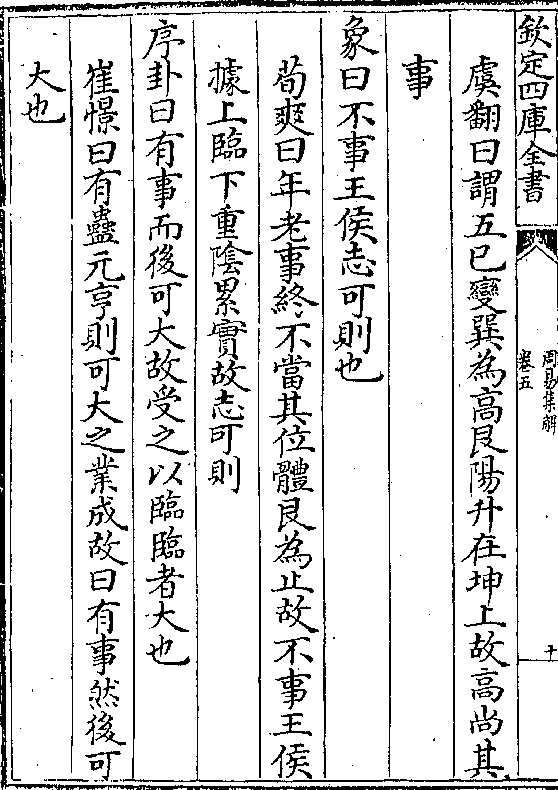 欽定四庫全書
周易集解
卷五
十
虞翻曰謂五已變巽為高艮陽升在坤上故高尚其
事
象曰不事王侯志可則也
荀爽曰年老事終不當其位體艮為止故不事王侯
據上臨下重陰累實故志可則
序卦曰有事而後可大故受之以臨臨者大也
崔憬曰有蠱元亨則可大之業成故曰有事然後可
大也